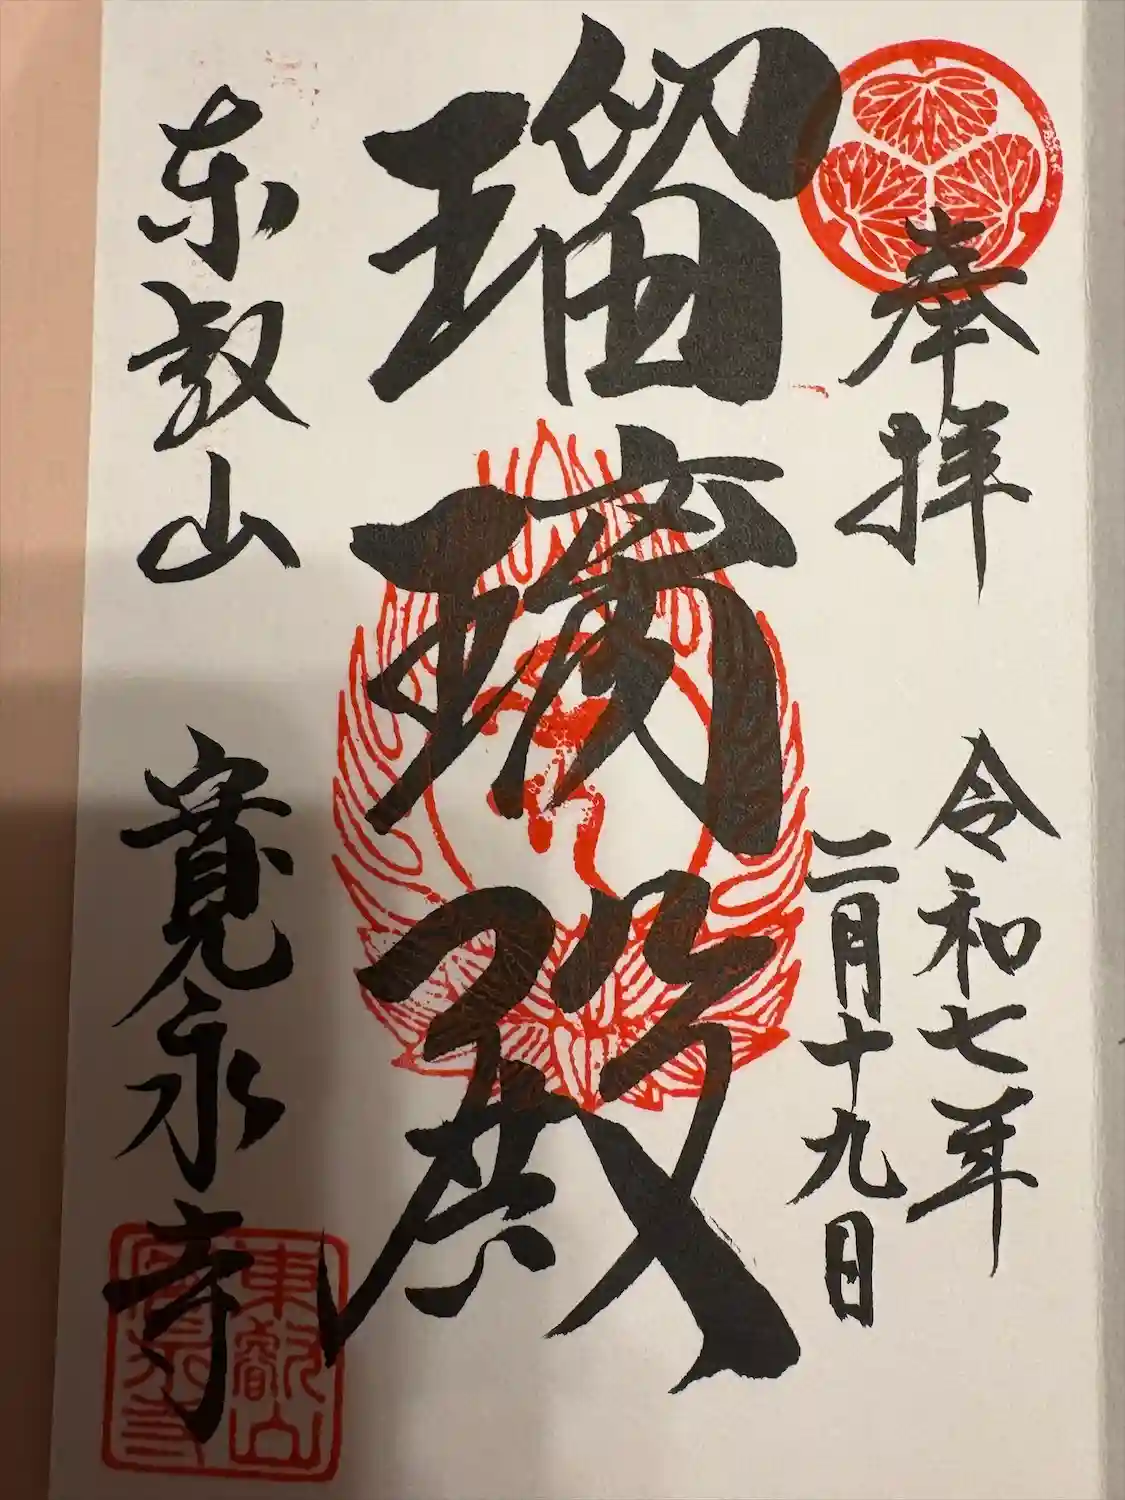 奉拝
令和七年
二月十九日
瑠璃殿
東叡山 寛永寺
東叡山
寛永寺